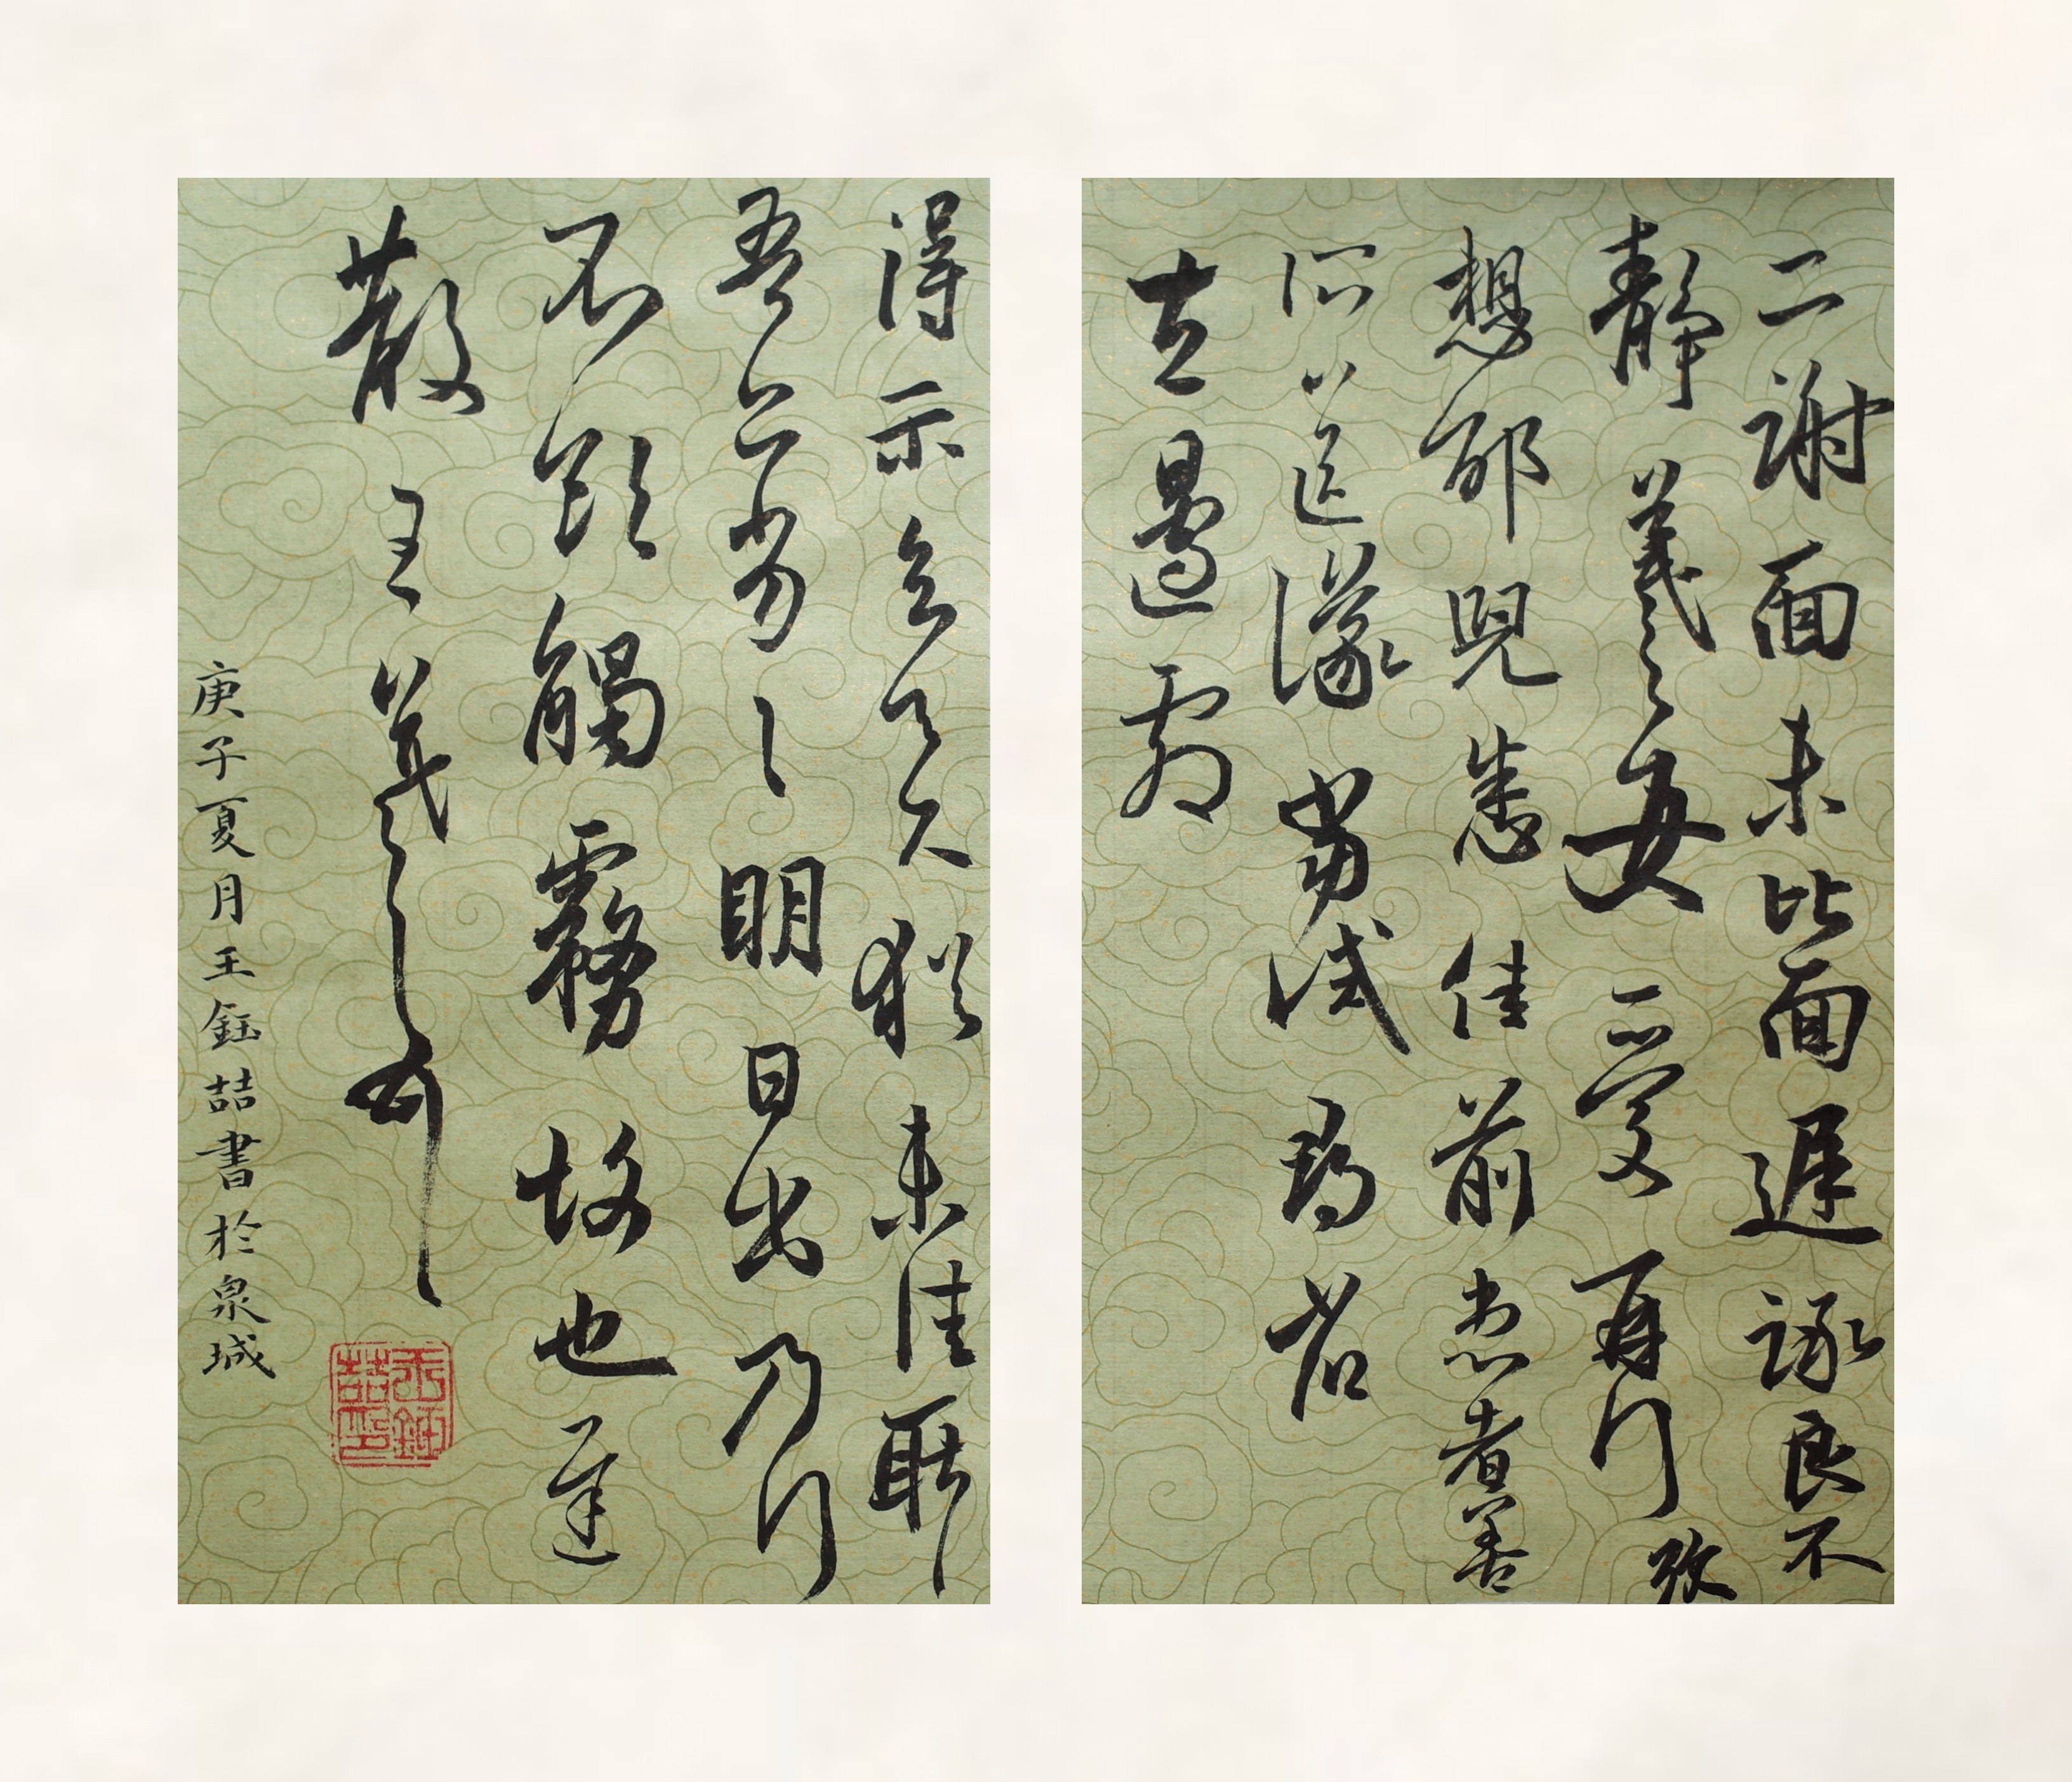 二謝面未比面遲詠良不
靜羲之女愛再拜
想邰兒悉佳前患者善
所送議當試尋省
左邊劇
得示知足下猶未佳耿耿
吾亦劣劣明日出乃行
不欲觸霧故也遲
散王羲之頓首
庚子夏月王鈺喆書於泉城
王鈺喆印